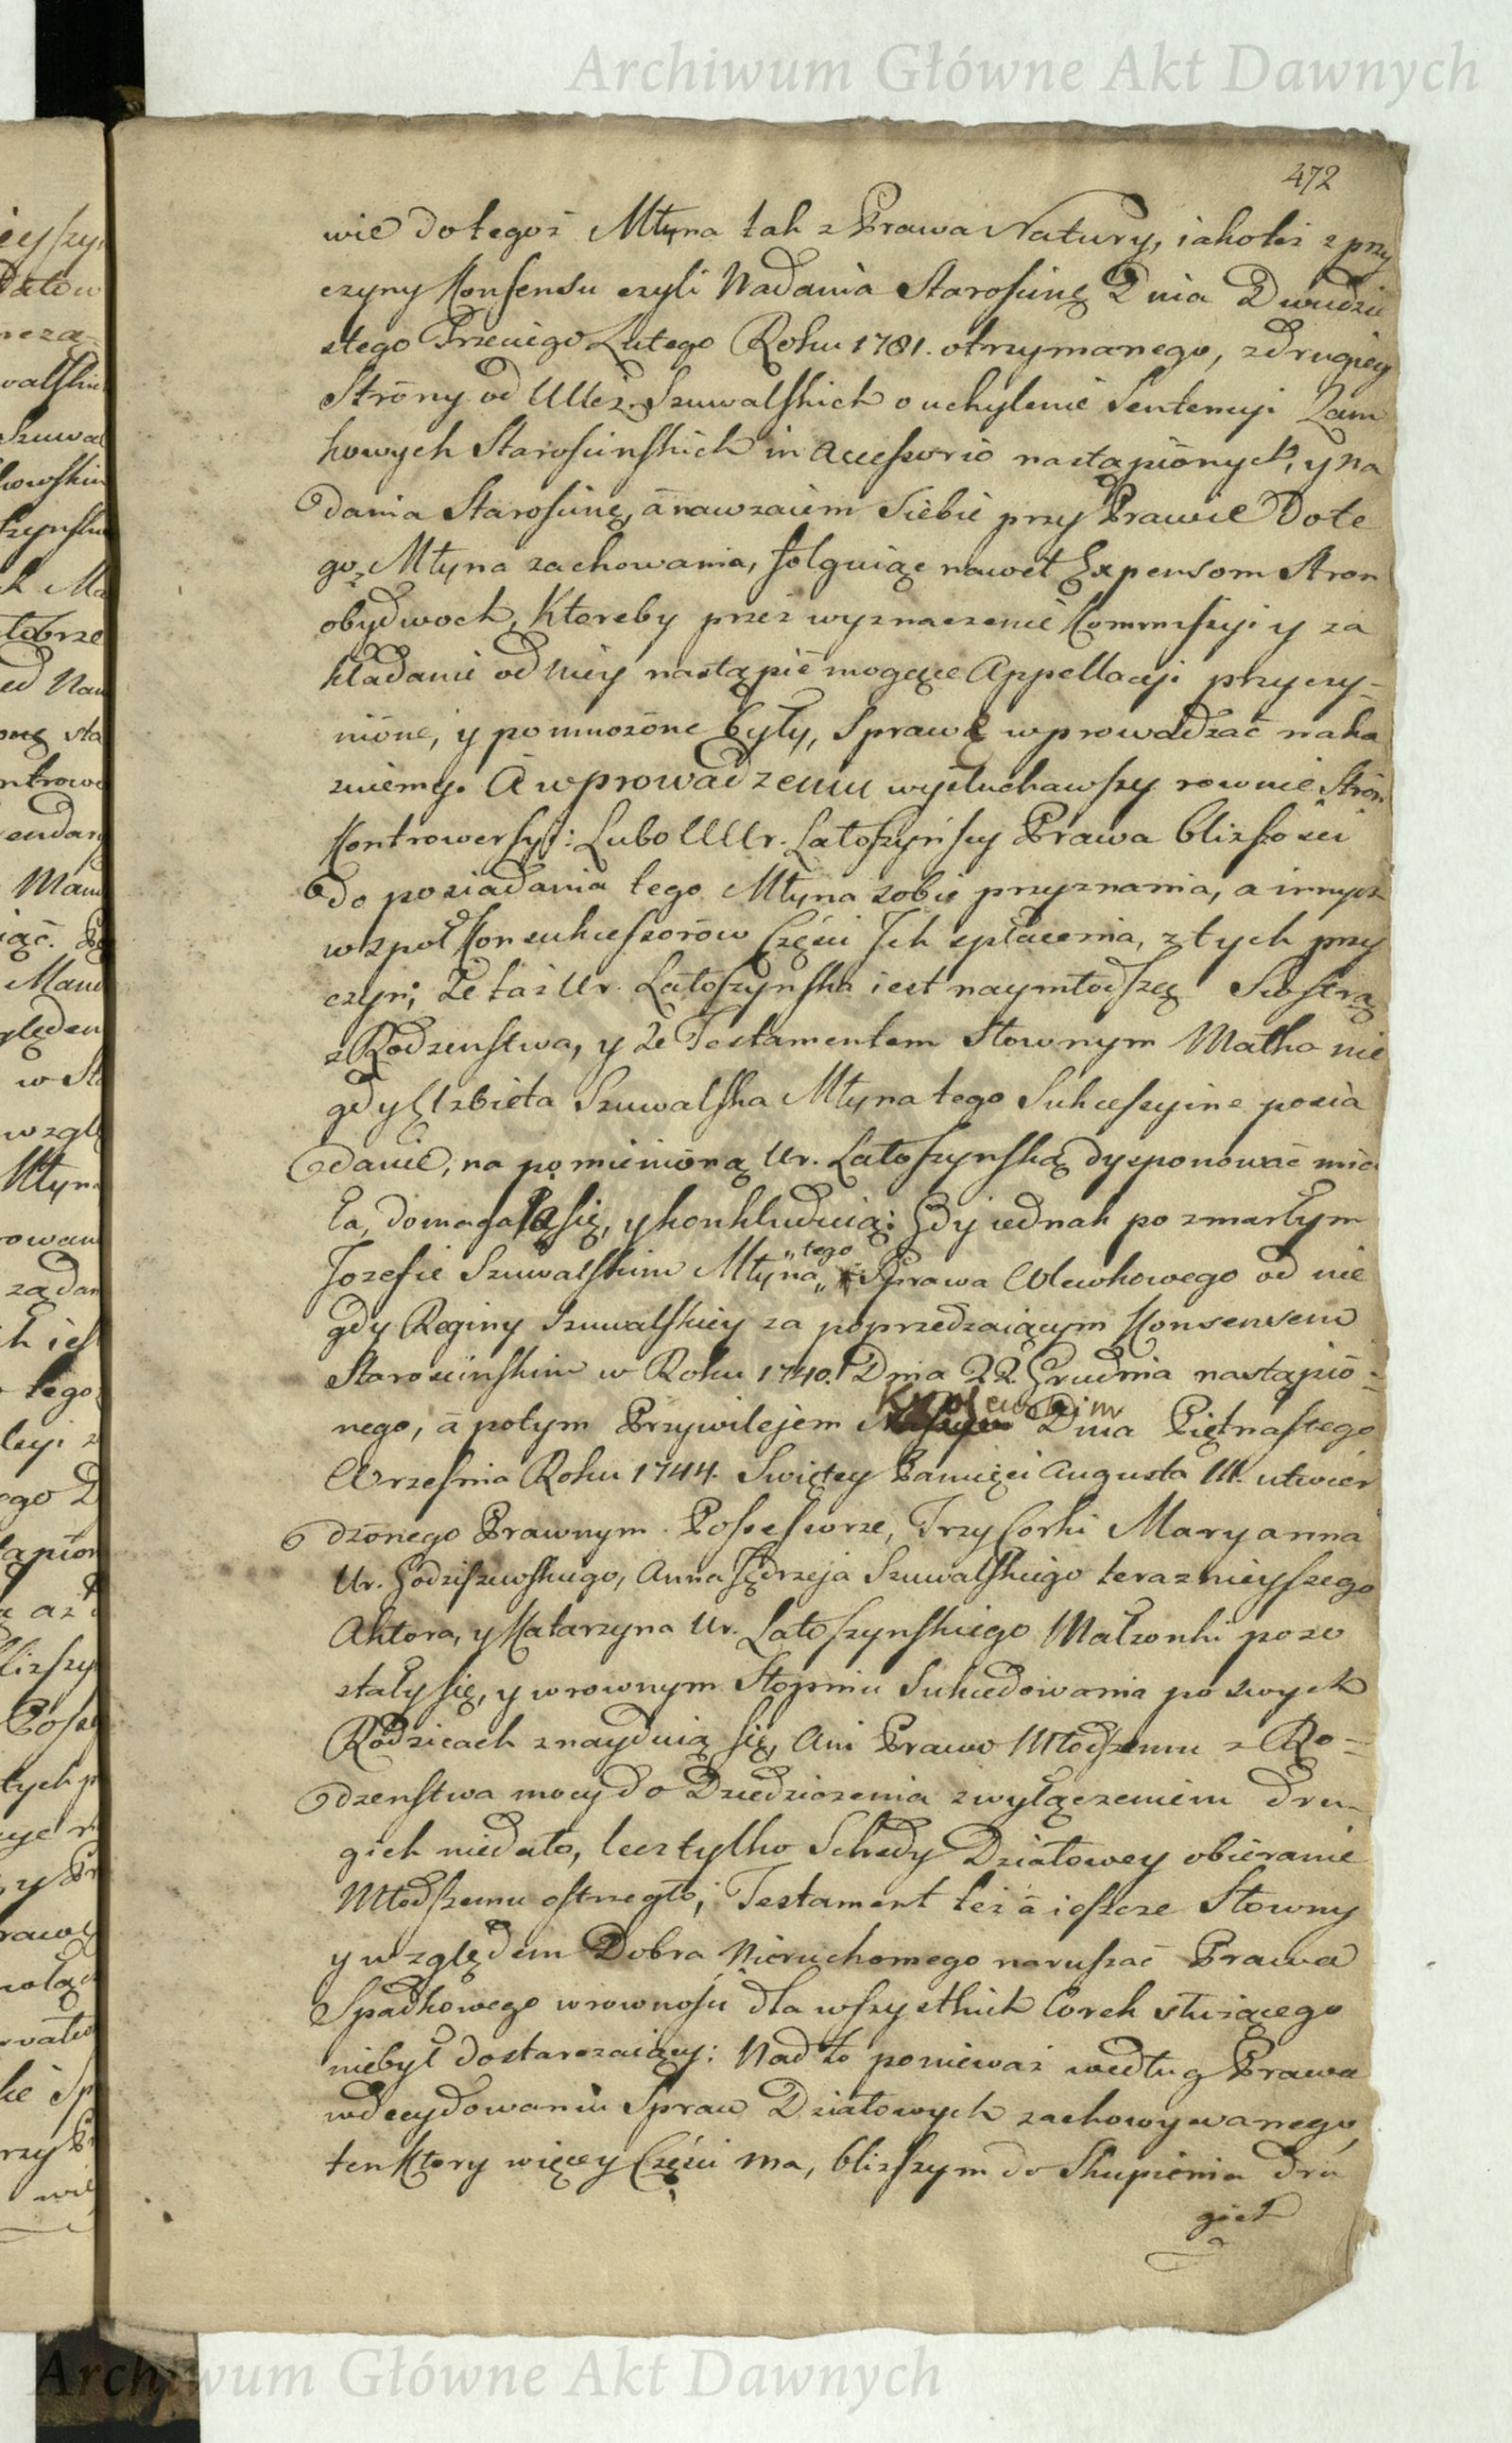 Archiwum Główne Akt Dawnych
472
wie do tegoż Młyna tak z Prawa Natury, iakoteż z przy
czyny Konsensu czyli Nadania Starościnę Dnia Dwudzie
stego Trzeciego Lutego Roku 1781. otrzymanego, z drugiey
Stróny od UUcz. Szuwalskich o uchylenie Sentencyi Zam
kowych Starościnskich in Accessorio nastąpiónych, y Na
dania Starościnę, á nawzaiem Siebie przy Prawie Do te
goż Młyna zachowania, folguiąc nawet Expensom Stron
obydwoch, Ktoreby przez wyznaczenie Kommissyi y za
kładanie od niey nastąpić mogące Appellacyi przyczy-
nióne, y pomnożóne były, Sprawę wprowadzać naka
zuiemy. A wprowadzeniu wysłuchawszy rownie Strón
Kontrowersyi: Lubo UUr. Latoszyńscy Prawa bliższości
do posiadania tego Młyna sobie przyznania, a innych
współ Konsukcessorów Części Ich spłacenia, z tych przy
czyn; że taż Ur. Latoszynska iest naymłodszą Siostrą
z Rodzenstwa, y że Testamentem Słownym Matka nie
gdy Elzbieta Szuwalska Młyna tego Sukcessyine posia
danie, na pomienióną Ur. Latoszynską dysponować mia
ła, domagałą się, y konkluduią: Gdy iednak po zmarłym
Jozefie Szuwalskim Młyna „tego„ Prawa Wlewkowego od nie
gdy Reginy Szuwalskiey za poprzedzaiącym Konsensem
Starościnskim w Roku 1740. Dnia 22 Grudnia nastąpió-
nego, á potym Przywilejem Krolewskim Dnia Piętnastego
Września Roku 1744. Swiętey Pamięci Augusta III. utwier
dzónego Prawnym Possessorze, Trzy Corki Maryanna
Ur. Godziszewskiego, Anna Jędrzeja Szuwalskiego teraznieyszego
Aktora, y Katarzyna Ur. Latoszynskiego Małżonki pozo
stały się, y w rownym Stopniu Sukcedowania po swych
Rodzicach znayduią się, Ani Prawo Młodszemu z Ro-
dzenstwa mocy do Dziedziczenia z wyłączeniem dru-
gich nie dało, lecz tylko Schedy Działowey obieranie
Młodszemu ostrzegło; Testament też á ieszcze Słowny
y względem Dobra Nieruchomego naruszać Prawa
Spadkowego w rownosci dla wszystkich Corek służącego
niebył dostarczaiący: Nad to ponieważ według Prawa
w decydowaniu Spraw Działowych zachowywanego,
ten Ktory więcey Części ma, bliższym do Skupienia dru
gich
Archiwum Główne Akt Dawnych